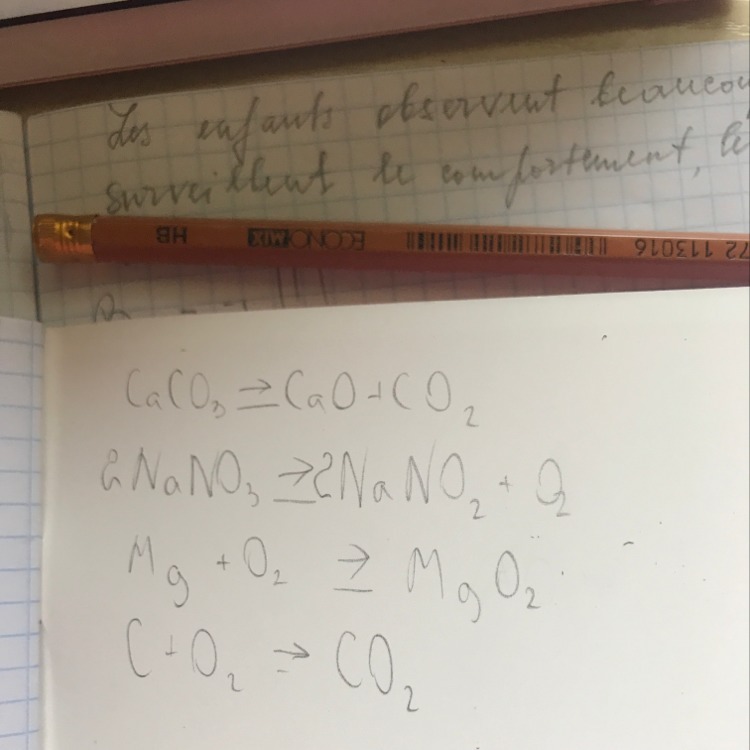 Les enfants observent beaucou
surveillent le comportement, le
HB ECONOMIX 72 113016
CaCO₃ ⇒ CaO + CO₂
2NaNO₃ ⇒ 2NaNO₂ + O₂
Mg + O₂ ⇒ MgO₂
C + O₂ ⇒ CO₂